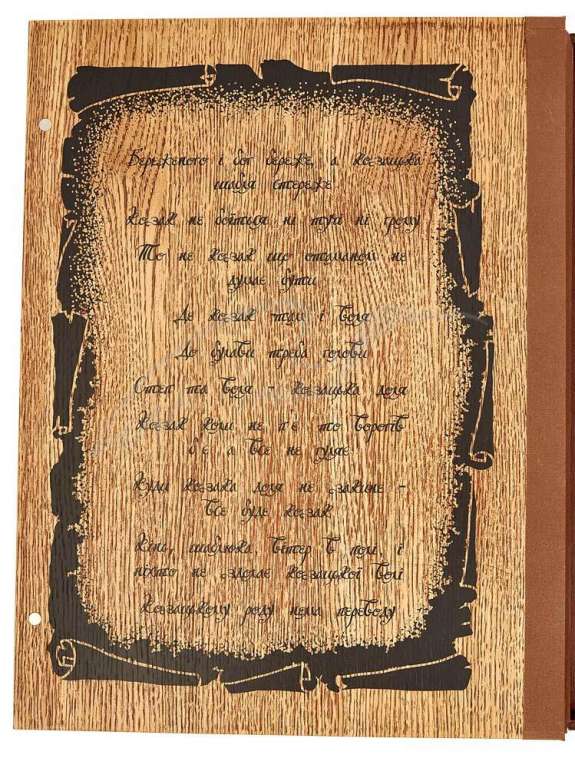 Береженого і бог береже, а козацька
шабля стереже
Козак не боїться ні тучі ні грому
То не козак що отаманом не
думає бути
Де козак -там і воля
До булави треба голови
Степ та воля - козацька доля
Козак коли не п'є то ворогів
б'є а все не гуляє
Куди козака доля не закине -
все буде козак
Кінь, шаблюка, вітер в полі, і
ніхто не здолає козацької волі
Козацькому роду нема переводу